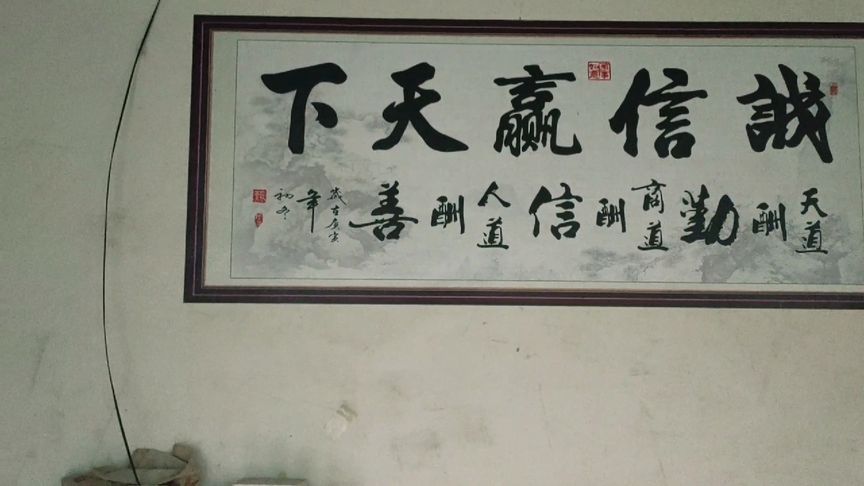 誠信赢天下
天道酬勤 商道酬信 人道酬善
歲在庚寅
年
初冬